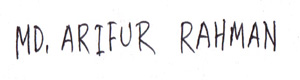 MD. ARIFUR RAHMAN